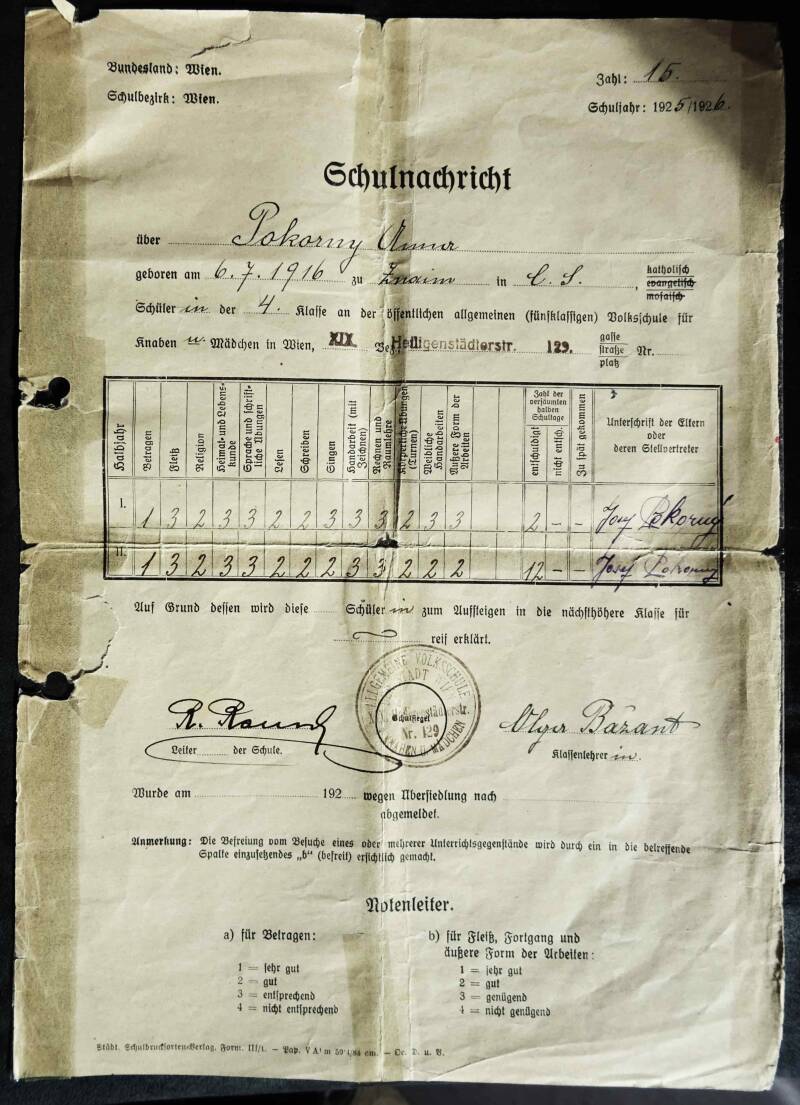 Bundesland: Wien.
Zahl: 15.
Schulbezirk: Wien.
Schuljahr: 1925/1926.
Schulnachricht
über Pokorny Anna
geboren am 6.7.1916 zu Znaim in C. S., katholisch evangelisch mosaisch
Schüler in der 4. Klasse an der öffentlichen allgemeinen (fünfklassigen) Volksschule für
Knaben u. Mädchen in Wien, XIX. Bez. Heiligenstädterstr. 129. gasse straße platz Nr.
Halbjahr
Betragen
Fleiß
Religion
Heimat- und Lebenskunde
Sprache und schriftliche Übungen
Lesen
Schreiben
Singen
Handarbeit (mit Zeichnen)
Rechnen und Raumlehre
Körperliche Übungen (Turnen)
Weibliche Handarbeiten
Äußere Form der Arbeiten
Zahl der versäumten halben Schultage
entschuldigt
nicht entsch.
Zu spät gekommen
Unterschrift der Eltern oder deren Stellvertreter
I. 1 3 2 3 3 2 2 3 3 3 2 3 3 2 – – Josef Pokorny
II. 1 3 2 3 3 2 2 2 3 3 2 2 2 12 – – Josef Pokorny
Auf Grund dessen wird diese Schüler in zum Aufsteigen in die nächsthöhere Klasse für
reif erklärt.
ALLGEMEINE VOLKSSCHULE
STADT WIEN
Heiligenstädterstr.
Schulsiegel
Nr. 129
KNABEN U. MÄDCHEN
R.
Olga Bažant
Leiter der Schule.
Klassenlehrer in.
Wurde am 192 wegen Übersiedlung nach
abgemeldet.
Anmerkung: Die Befreiung vom Besuche eines oder mehrerer Unterrichtsgegenstände wird durch ein in die betreffende
Spalte einzusetzendes „b“ (befreit) ersichtlich gemacht.
Notenleiter.
a) für Betragen:
1 = sehr gut
2 = gut
3 = entsprechend
4 = nicht entsprechend
b) für Fleiß, Fortgang und
äußere Form der Arbeiten:
1 = sehr gut
2 = gut
3 = genügend
4 = nicht genügend
Städt. Schuldrucksorten-Verlag. Form. III/1. — Pap. V A¹ m 59½/84 cm. — Oe. D. u. V.